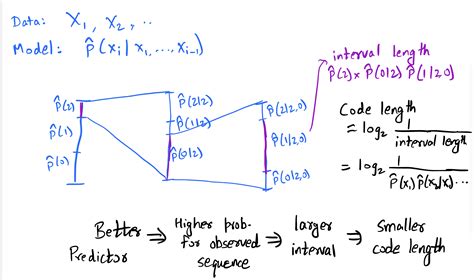 Data: X₁, X₂, ..
Model: P̂(xᵢ | x₁, ..., xᵢ₋₁)
interval length
P̂(2) × P̂(0|2) P̂(1|2 0)
P̂(2)
P̂(1)
P̂(0)
P̂(2|2)
P̂(1|2)
P̂(0|2)
P̂(2|2,0)
P̂(1|2,0)
P̂(0|2,0)
Code length
= log₂ 1 / interval length
= log₂ 1 / P̂(x₁) P̂(x₂|x₁) ...
Better Predictor ⇒ Higher prob. for observed sequence ⇒ larger interval ⇒ Smaller code length